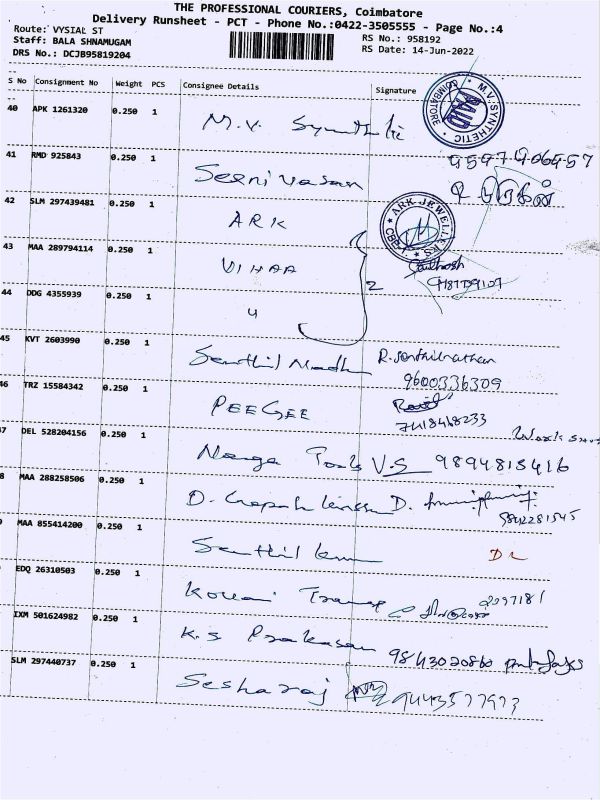 THE PROFESSIONAL COURIERS, Coimbatore
Delivery Runsheet - PCT - Phone No.:0422-3505555 - Page No.:4
Route: VYSIAL ST
RS No.: 958192
Staff: BALA SHNAMUGAM
RS Date: 14-Jun-2022
DRS No.: DCJB95819204
S No Consignment No Weight PCS Consignee Details Signature
40 APK 1261320 0.250 1 M.V. Synthetic
M.V.SYNTHETIC COIMBATORE PAID
41 RMD 925843 0.250 1 Seenivasan
42 SLM 297439481 0.250 1 ARK
ARK JEWELLERS CBE
43 MAA 289794114 0.250 1 VIHAA 2
44 DDG 4355939 0.250 1 4
45 KVT 2603990 0.250 1 Senthil Nadhan
9600336309
46 TRZ 15584342 0.250 1 PEEGEE
7418468233
47 DEL 528204156 0.250 1 Nanga Tools V.S 9894813416
8 MAA 288258506 0.250 1 D. D.
9842281545
MAA 855414200 0.250 1 Senthil
EDQ 26310503 0.250 1 Kovai 2397181
IXM 501624982 0.250 1 K.S Prakasan 9843020860
SLM 297440737 0.250 1 Sesharaj 9443577973